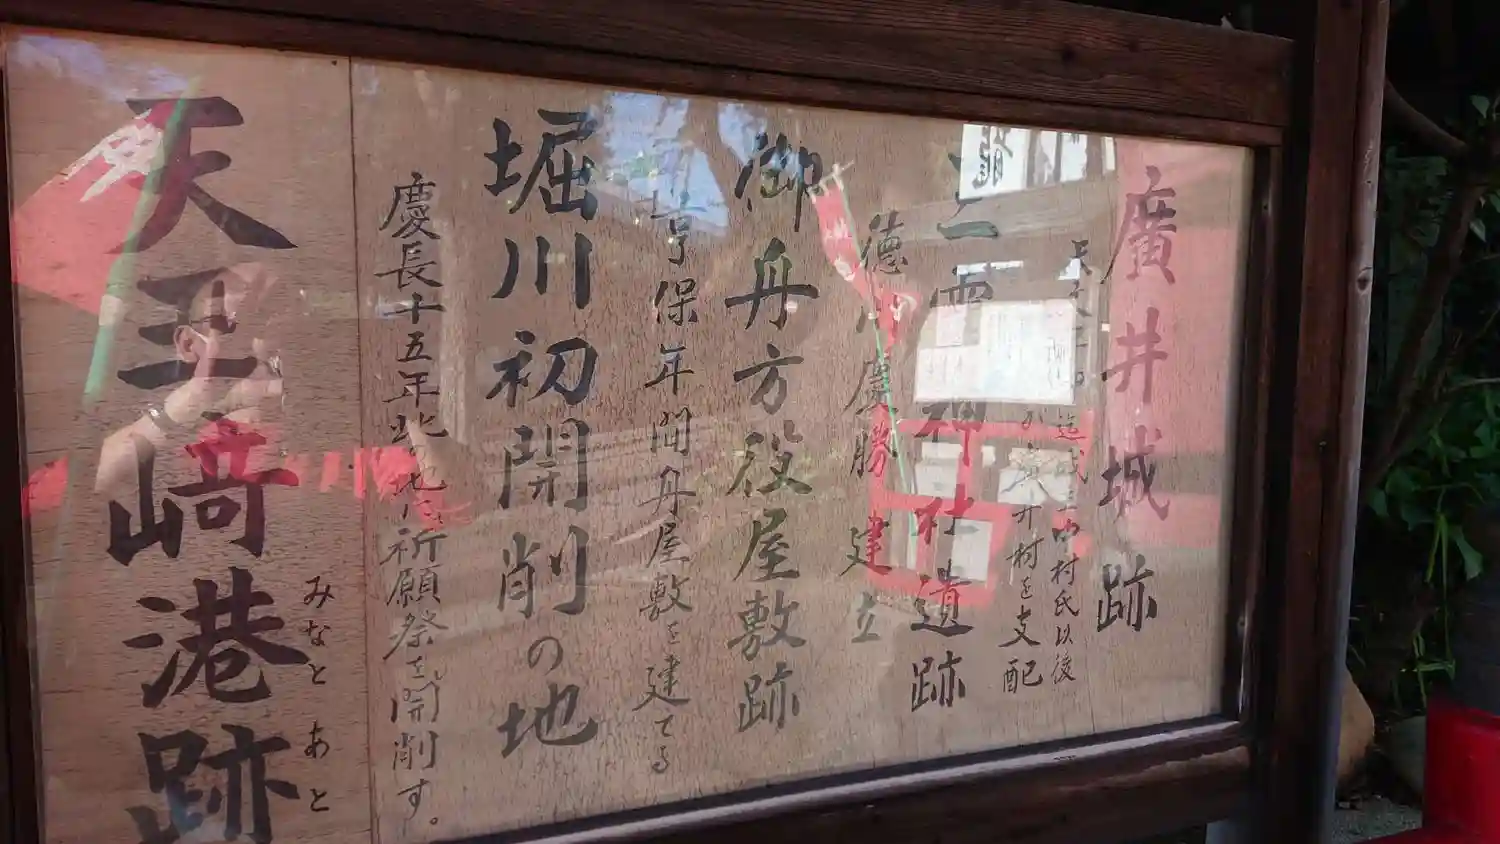 廣井城跡
迄城主山村氏以後
廣井村を支配
霊神社遺跡
徳川慶勝建立
御舟方役屋敷跡
亨保年間舟屋敷を建てる
堀川初開削の地
慶長十五年此の地に祈願祭を行開削す。
天王崎港跡
みなと あと
龍